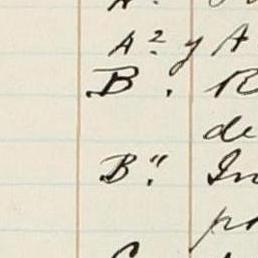 A² y A
B. R
de
B". In
po